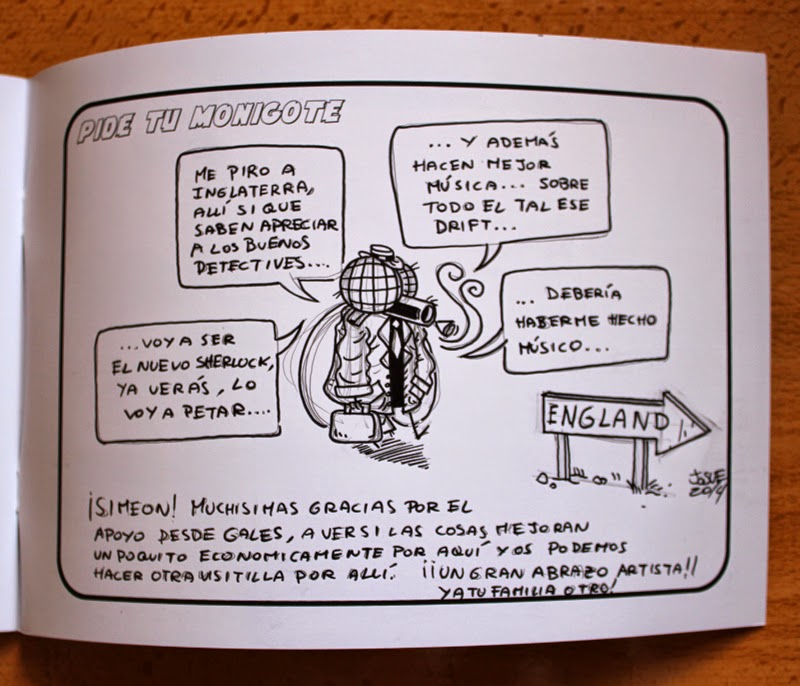 PIDE TU MONIGOTE
ME PIRO A
INGLATERRA,
ALLÍ SI QUE
SABEN APRECIAR
A LOS BUENOS
DETECTIVES....
... Y ADEMÁS
HACEN MEJOR
MÚSICA... SOBRE
TODO EL TAL ESE
DRIFT...
...VOY A SER
EL NUEVO SHERLOCK,
YA VERÁS, LO
VOY A PETAR....
... DEBERÍA
HABERME HECHO
MÚSICO...
ENGLAND
JOSUE
2014
¡SIMEON! MUCHISIMAS GRACIAS POR EL
APOYO DESDE GALES, A VER SI LAS COSAS MEJORAN
UN POQUITO ECONOMICAMENTE POR AQUÍ Y OS PODEMOS
HACER OTRA VISITILLA POR ALLÍ. ¡¡UN GRAN ABRAZO ARTISTA!!
Y A TU FAMILIA OTRO!